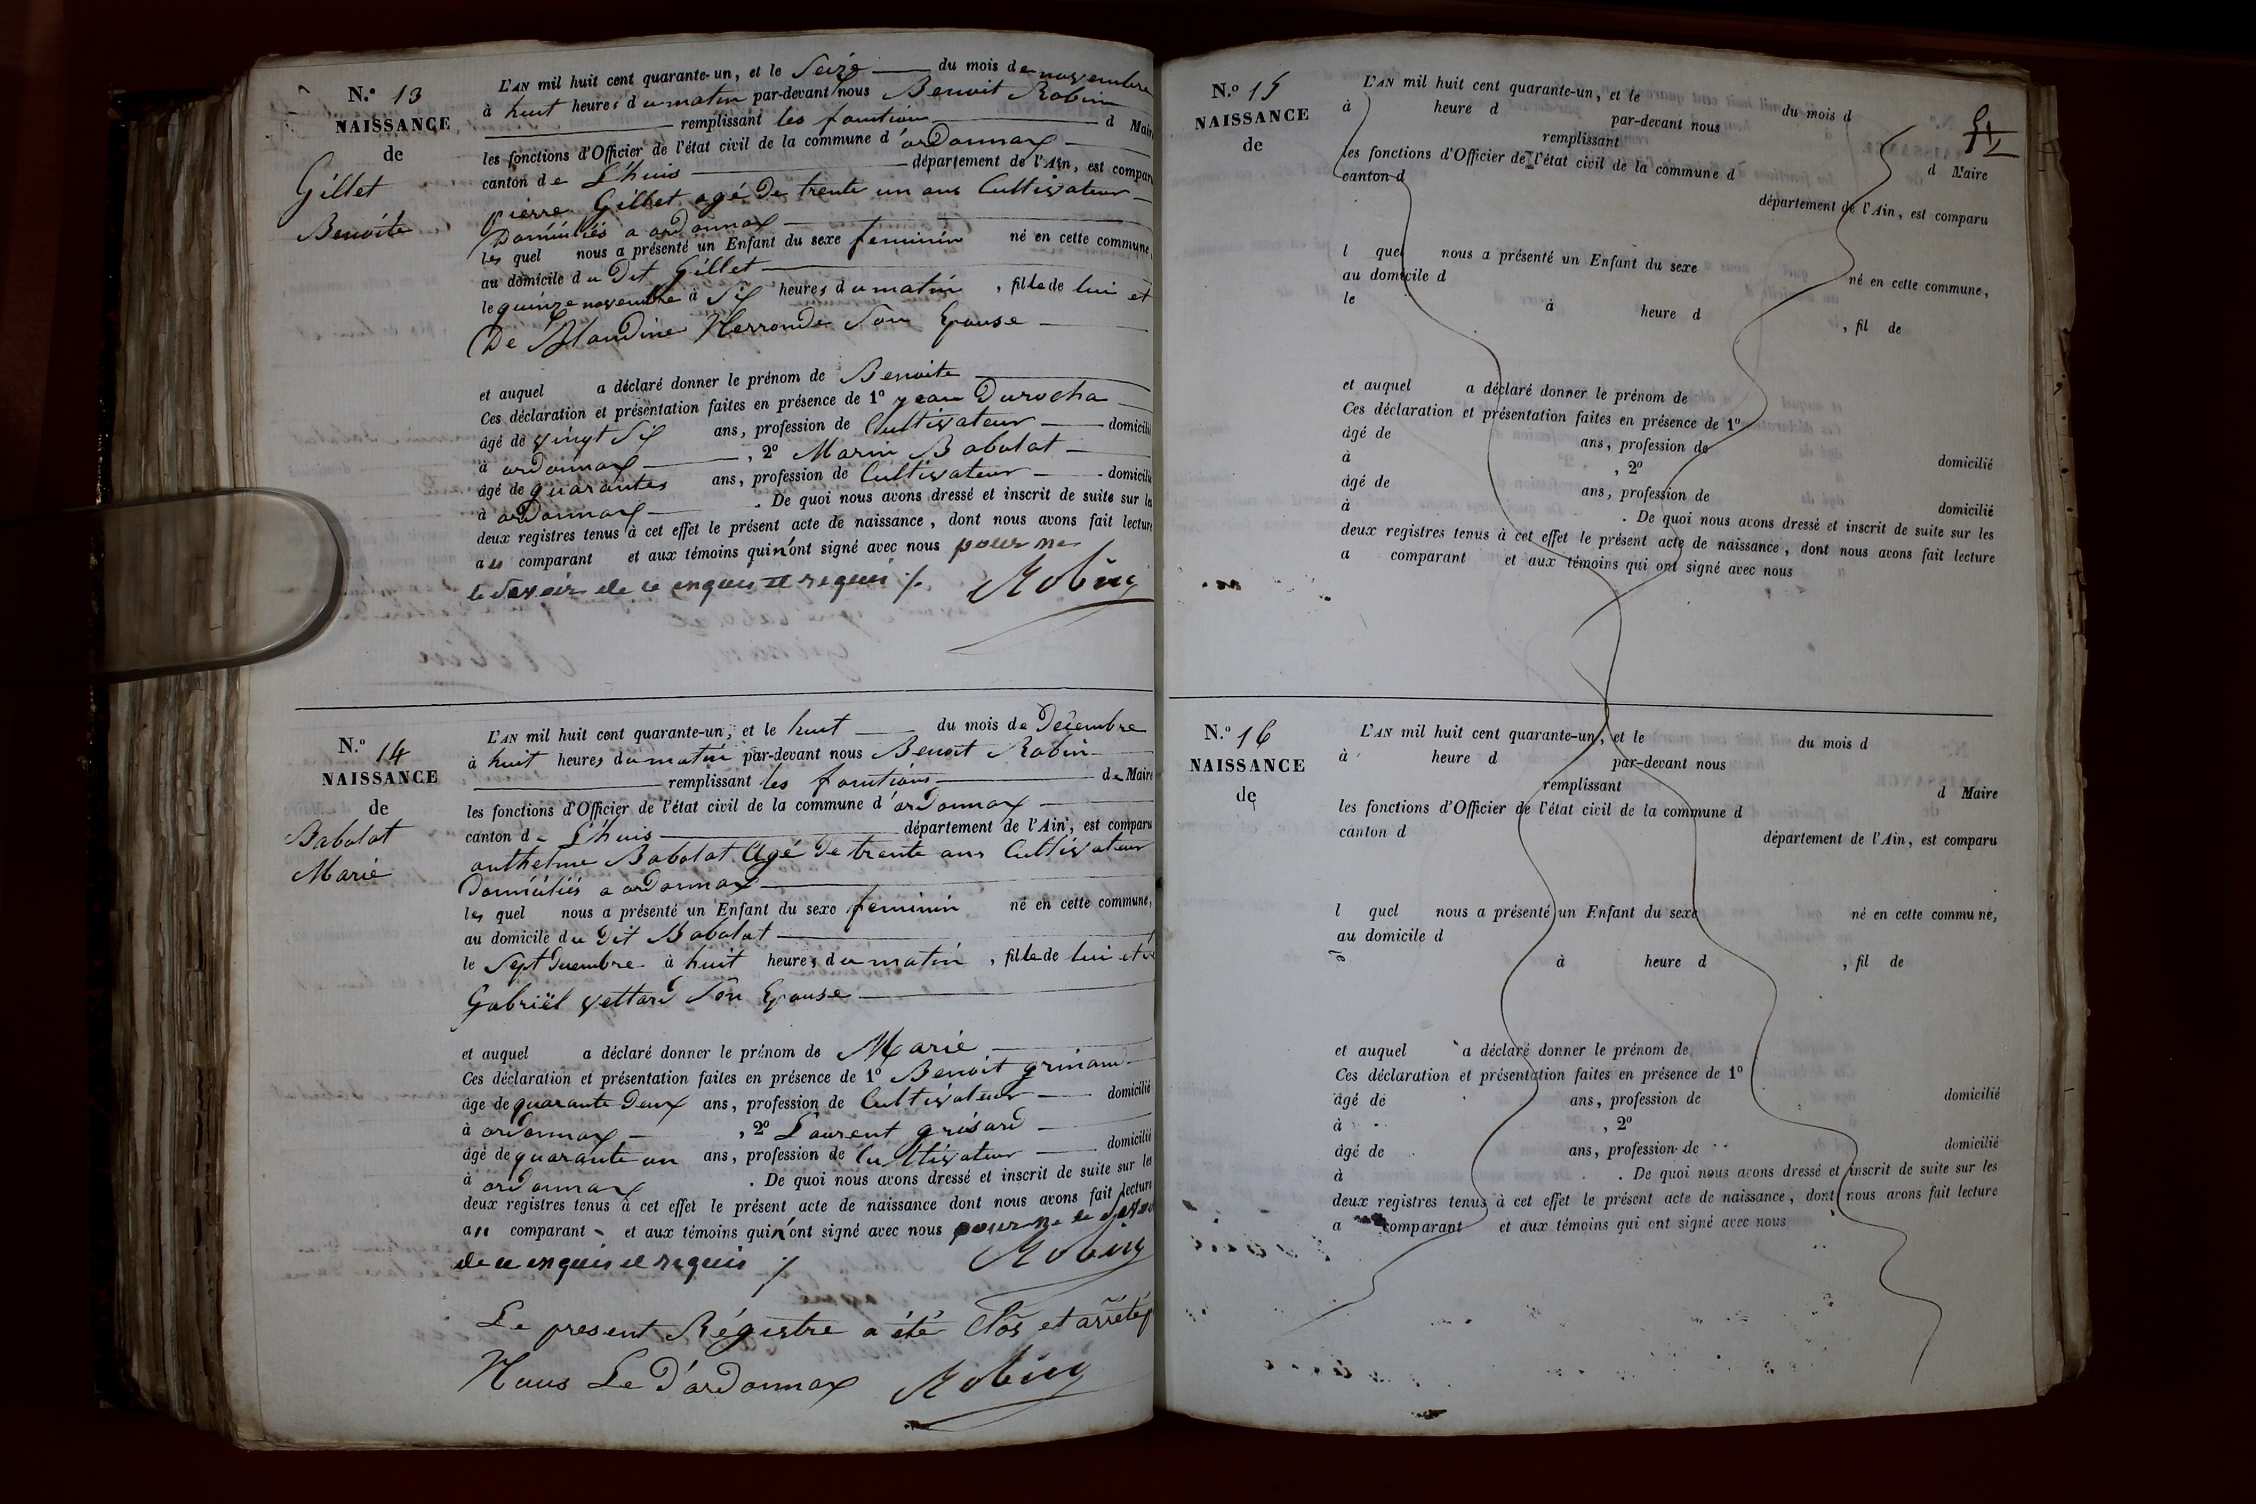 N.º 13
NAISSANCE
de
Gillet
Benoîte
L'AN mil huit cent quarante-un, et le Seize du mois de novembre
à huit heures du matin par-devant nous Benoit Robin
remplissant les fonctions d Maire
les fonctions d'Officier de l'état civil de la commune d'ordonnax
canton de Lhuis département de l'Ain, est comparu
pierre Gillet agé De trente un ans Cultivateur
Domiciliés a ordonnax
les quel nous a présenté un Enfant du sexe feminin né en cette commune,
au domicile du Dit Gillet
le quinze novembre à Six heures du matin, fille de lui et
De Blandine Merronde Son Epouse
et auquel a déclaré donner le prénom de Benoite
Ces déclaration et présentation faites en présence de 1º jean Durocha
âgé de vingt Six ans, profession de Cultivateur domicilié
à ordonnax, 2º Marin Babolat
âgé de quarantes ans, profession de Cultivateur domicilié
à ordonnax. De quoi nous avons dressé et inscrit de suite sur les
deux registres tenus à cet effet le présent acte de naissance, dont nous avons fait lecture
aus comparant et aux témoins qui n'ont signé avec nous pour ne
le savoir de ce enquis et requis ./. Robin
N.º 14
NAISSANCE
de
Babolat
Marie
L'AN mil huit cent quarante-un, et le huit du mois de Décembre
à huit heures du matin par-devant nous Benoit Robin
remplissant les fonctions de Maire
les fonctions d'Officier de l'état civil de la commune d'ordonnax
canton de Lhuis département de l'Ain, est comparu
anthelme Babolat Agé De trente ans Cultivateur
Domiciliés a ordonnax
les quel nous a présenté un Enfant du sexe feminin né en cette commune,
au domicile du Dit Babolat
le Sept Decembre à huit heures du matin, fille de lui et de
Gabriël Vettard Son Epouse
et auquel a déclaré donner le prénom de Marie
Ces déclaration et présentation faites en présence de 1º Benoit grinand
âge de quarante Deux ans, profession de Cultivateur domicilié
à ordonnax, 2º Laurent grisard
âgé de quarante un ans, profession de Cultivateur domicilié
à ordonnax. De quoi nous avons dressé et inscrit de suite sur les
deux registres tenus à cet effet le présent acte de naissance dont nous avons fait lecture
au comparant et aux témoins qui n'ont signé avec nous pour ne le savoir
de ce enquis et requis ./. Robin
Le present Régistre a été Clos et arrêté
Nous Le D'ordonnax Robin
N.º 15
NAISSANCE
de
L'AN mil huit cent quarante-un, et le du mois d
à heure d par-devant nous
remplissant d Maire
les fonctions d'Officier de l'état civil de la commune d
canton d département de l'Ain, est comparu
l quel nous a présenté un Enfant du sexe né en cette commune,
au domicile d
le à heure d, fil de
et auquel a déclaré donner le prénom de
Ces déclaration et présentation faites en présence de 1º
âgé de ans, profession de domicilié
à, 2º
âgé de ans, profession de domicilié
à. De quoi nous avons dressé et inscrit de suite sur les
deux registres tenus à cet effet le présent acte de naissance, dont nous avons fait lecture
a comparant et aux témoins qui ont signé avec nous
N.º 16
NAISSANCE
de
L'AN mil huit cent quarante-un, et le du mois d
à heure d par-devant nous
remplissant d Maire
les fonctions d'Officier de l'état civil de la commune d
canton d département de l'Ain, est comparu
l quel nous a présenté un Enfant du sexe né en cette commune,
au domicile d
le à heure d, fil de
et auquel a déclaré donner le prénom de
Ces déclaration et présentation faites en présence de 1º
âgé de ans, profession de domicilié
à, 2º
âgé de ans, profession de domicilié
à. De quoi nous avons dressé et inscrit de suite sur les
deux registres tenus à cet effet le présent acte de naissance, dont nous avons fait lecture
a comparant et aux témoins qui ont signé avec nous